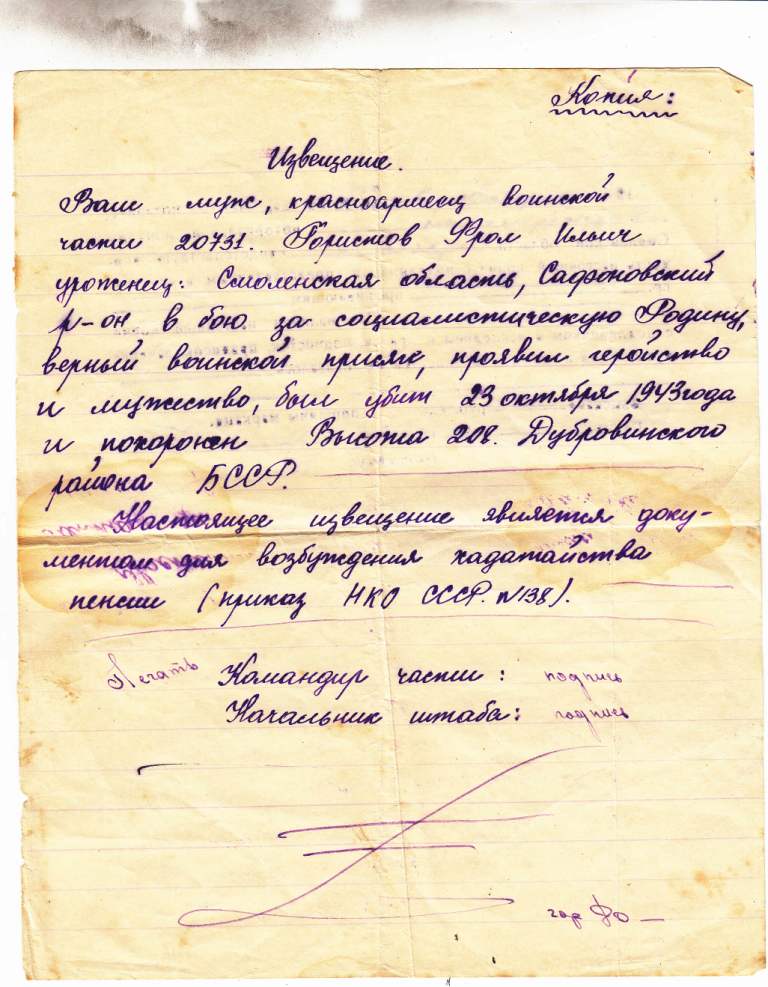 Копия:
Извещение.
Ваш муж, красноармеец воинской
части 20731. Гористов Фрол Ильич
уроженец: Смоленская область, Сафоновский
р-он в бою за социалистическую Родину,
верный воинской присяге, проявил геройство
и мужество, был убит 23 октября 1943 года
и похоронен Высота 208. Дубровинского
района БССР.
Настоящее извещение является доку-
ментом для возбуждения хадатайства
пенсии (приказ НКО СССР. N138).
Печать Командир части: подпись
Начальник штаба: подпись